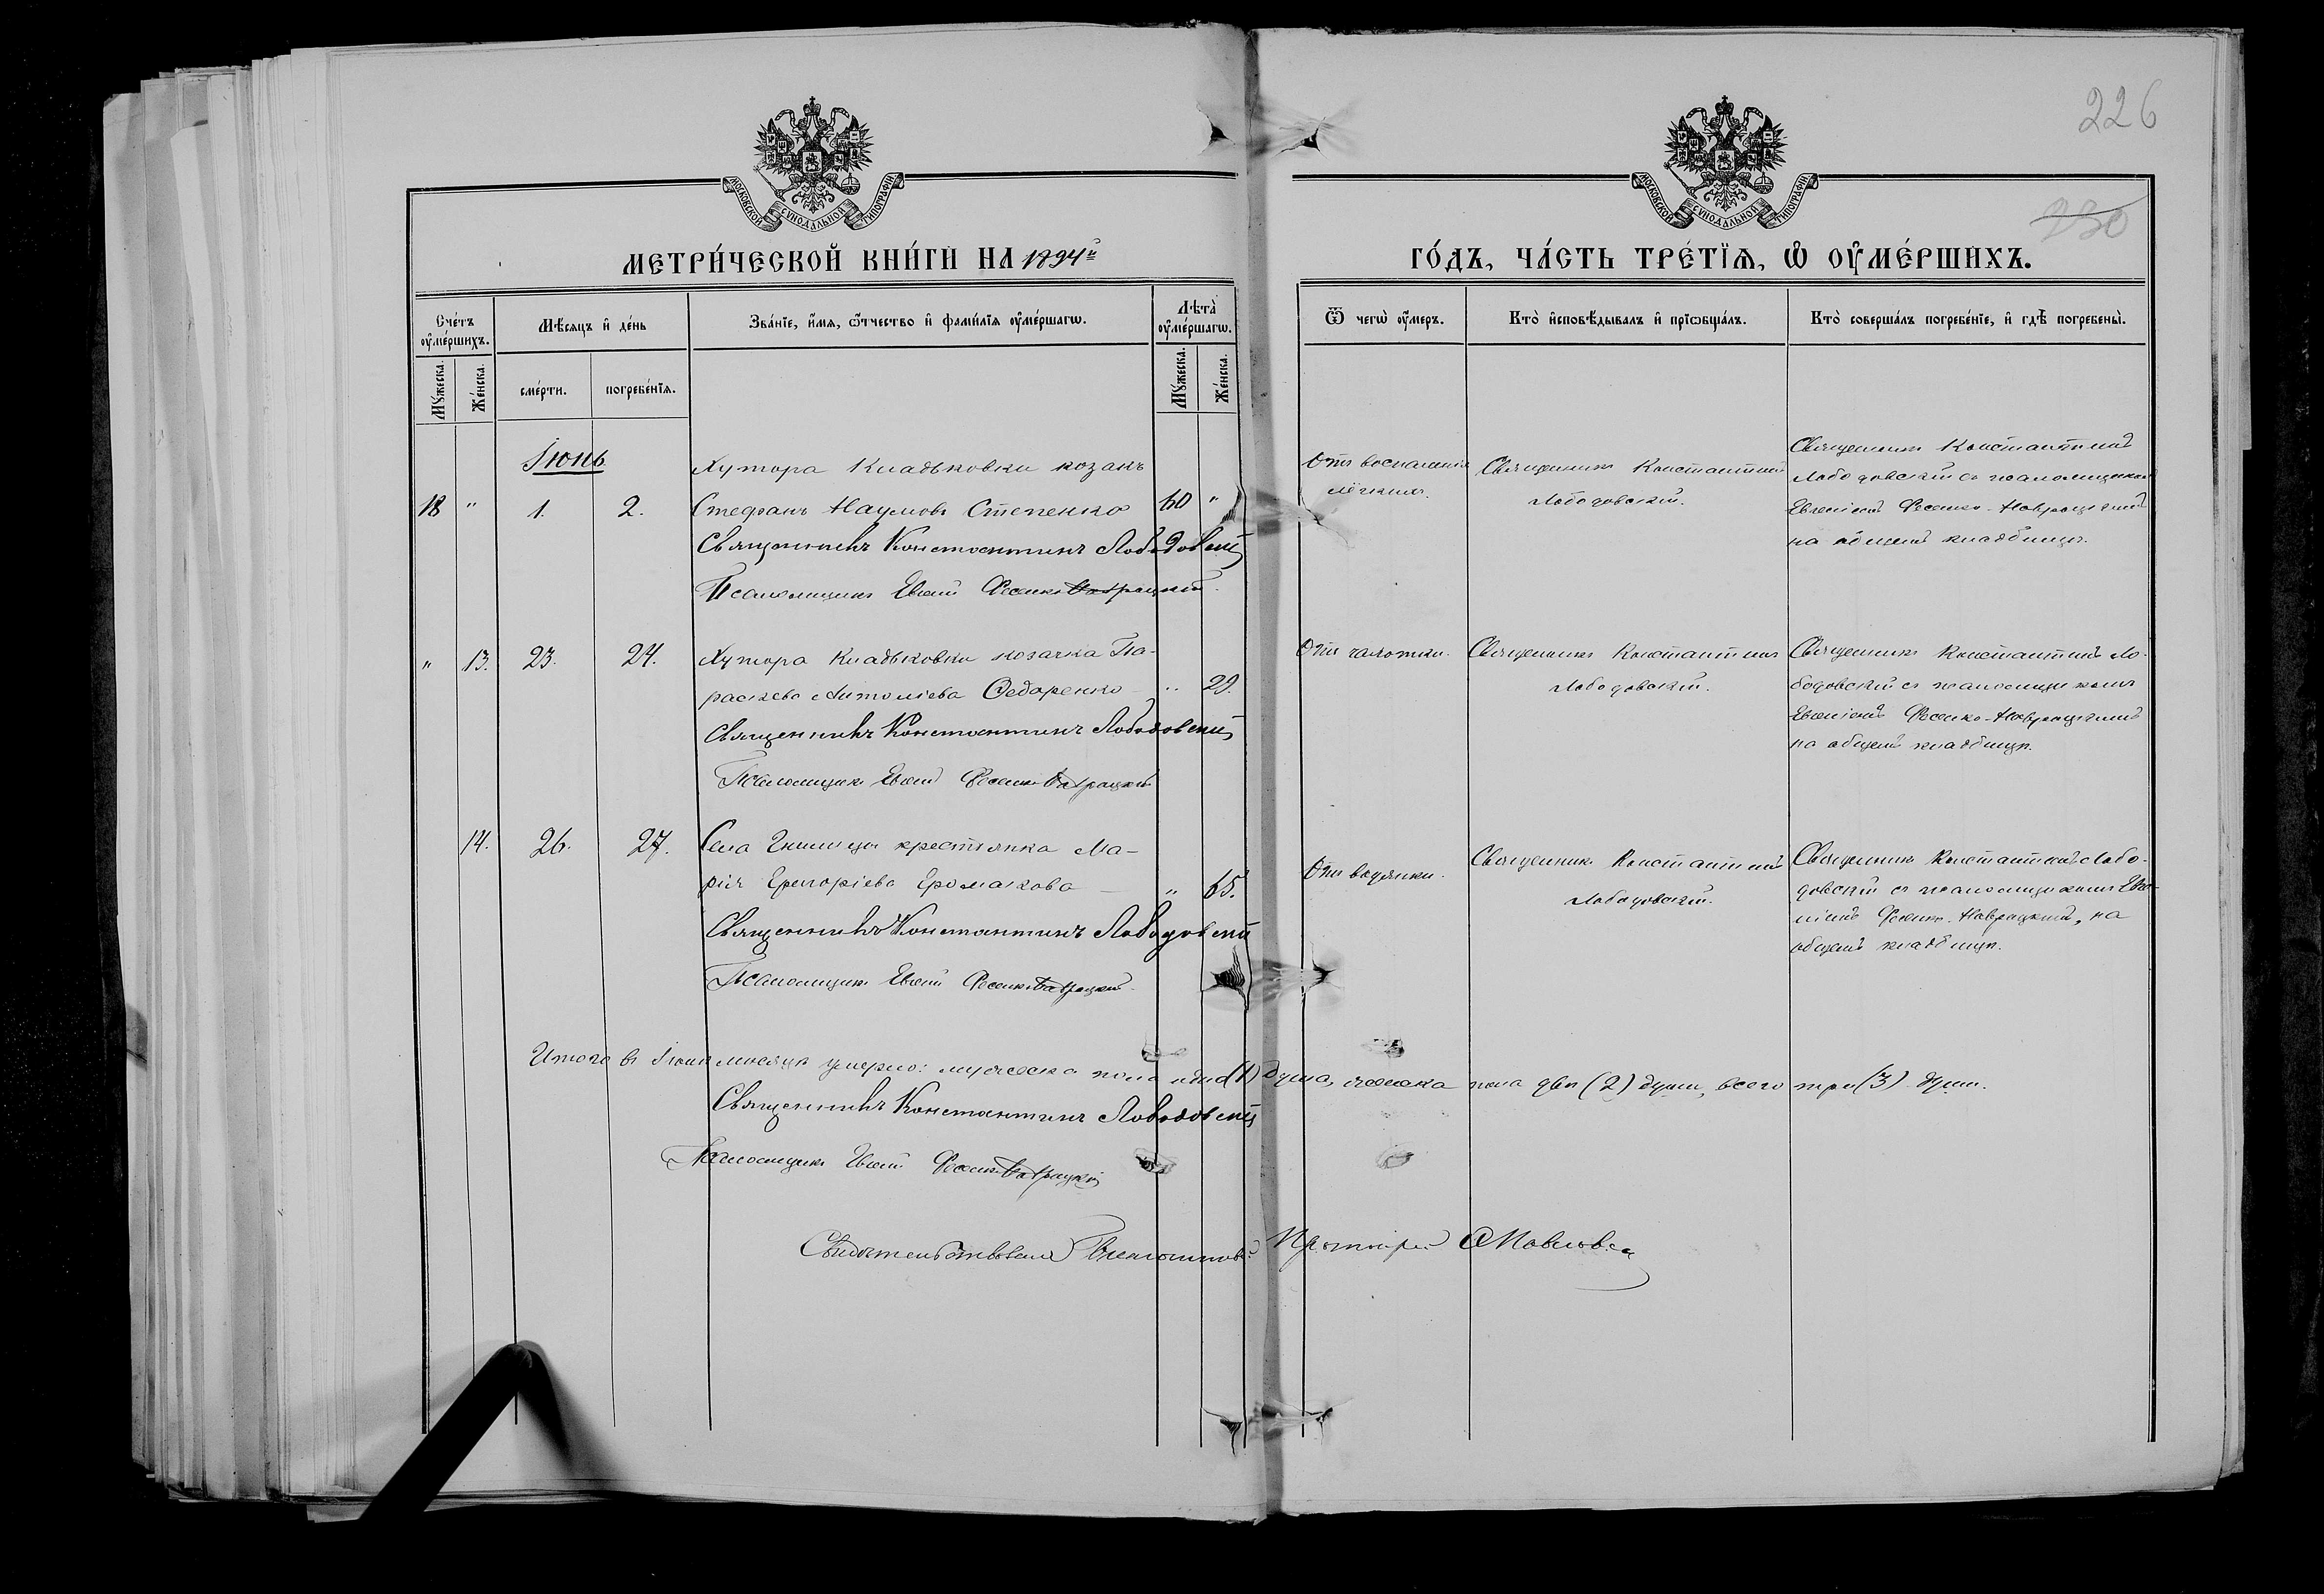 226
230
МОСКОВСКОЙ СѴНОДАЛЬНОЙ ТИПОГРАФІИ
МОСКОВСКОЙ СѴНОДАЛЬНОЙ ТИПОГРАФІИ
МЕТРИ́ЧЕСКОЙ КНИ́ГИ НА 1894й
ГО́ДЪ, ЧА́СТЬ ТРЕ́ТЇѦ, Ѡ҆ ОУ҆МЕ́РШИХЪ.
Сче́тъ оу҆ме́ршихъ.
Мѣ́сяцъ и҆ де́нь
Зва́нїе, и҆́мѧ, ѻ҆́тчество и҆ фами́лїѧ оу҆ме́ршагѡ.
Лѣта̀ оу҆ме́ршагѡ.
Ѿ чегѡ̀ оу҆́меръ.
Кто̀ и҆сповѣ́дывалъ и҆ прїѡбща́лъ.
Кто̀ соверша́лъ погребе́нїе, и҆ гдѣ̀ погребены̀.
Мꙋ́жеска.
Же́нска.
сме́рти.
погребе́нїѧ.
Мꙋ́жеска.
Же́нска.
Іюнь
Хутора Кладьковки козакъ
18 " 1. 2. Стефанъ Наумовъ Степенко 60 "
Священникъ Константинъ Лободовскій
Псаломщикъ Евгеній Фесенко-Навроцкій.
Отъ воспаленія
легкихъ.
Священникъ Константинъ
Лободовскій.
Священникъ Константинъ
Лободовскій съ псаломщикомъ
Евгеніемъ Фесенко-Навроцкимъ
на общемъ кладбищѣ.
Хутора Кладьковки козачка Па-
" 13. 23. 24. раскева Антоніева Федоренко " 29.
Священникъ Константинъ Лободовскій
Псаломщикъ Евгеній Фесенко-Навроцкій
Отъ чахотки.
Священникъ Константинъ
Лободовскій.
Священникъ Константинъ Ло-
бодовскій съ псаломщикомъ
Евгеніемъ Фесенко-Навроцкимъ
на общемъ кладбищѣ.
14. 26. 27. Села крестьянка Ма-
рія Григоріева Ермакова " 65.
Священникъ Константинъ Лободовскій
Псаломщикъ Евгеній Фесенко-Навроцкій.
Отъ водянки.
Священникъ Константинъ
Лободовскій.
Священникъ Константинъ Лобо-
довскій съ псаломщикомъ Евге-
ніемъ Фесенко-Навроцкимъ, на
общемъ кладбищѣ.
Итого въ Іюнѣ мѣсяцѣ умерло: мужеска пола одна (1) душа, женска пола двѣ (2) души, всего три (3) души.
Священникъ Константинъ Лободовскій
Псаломщикъ Евгеній Фесенко-Навроцкій
Свидѣтельствовалъ Протоіерей